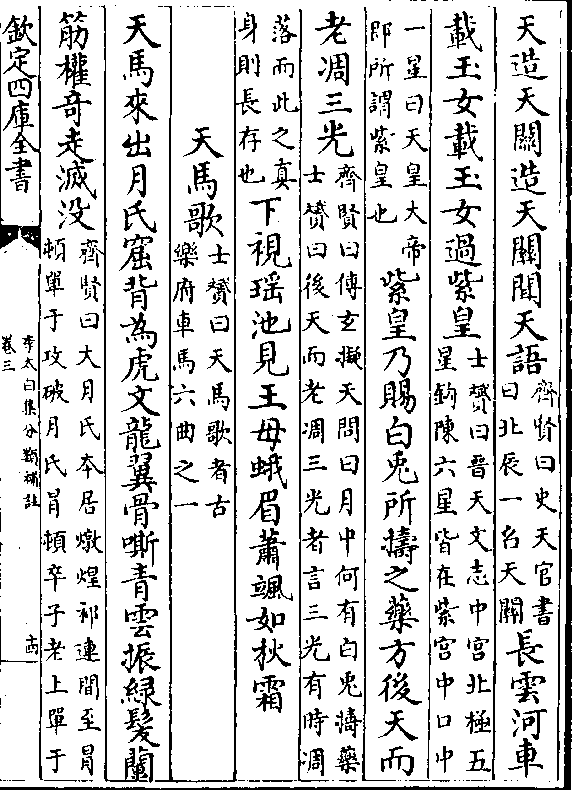 天造天關造天關聞天語齊賢曰史天官書長雲河車
曰北辰一名天關
載玉女載玉女過紫皇士贇曰晉天文志中宮北極五
星鉤陳六星皆在紫宮中口中
一星曰天皇大帝紫皇乃賜白兎所擣之藥方後天而
即所謂紫皇也
老凋三光齊賢曰傅玄擬天問曰月中何有白兎擣藥
士贇曰後天而老凋三光者言三光有時凋
落而此之真下視瑶池見王母蛾眉蕭颯如秋霜
身則長存也
天馬歌士贇曰天馬歌者古
樂府車馬六曲之一
天馬來出月氏窟背為虎文龍翼骨嘶青雲振緑髮蘭
筋權奇走滅没齊賢曰大月氏本居燉煌祁連間至冒
頓單于攻破月氏冐頓卒子老上單于
欽定四庫全書
李太白集分類補註
卷三
十四